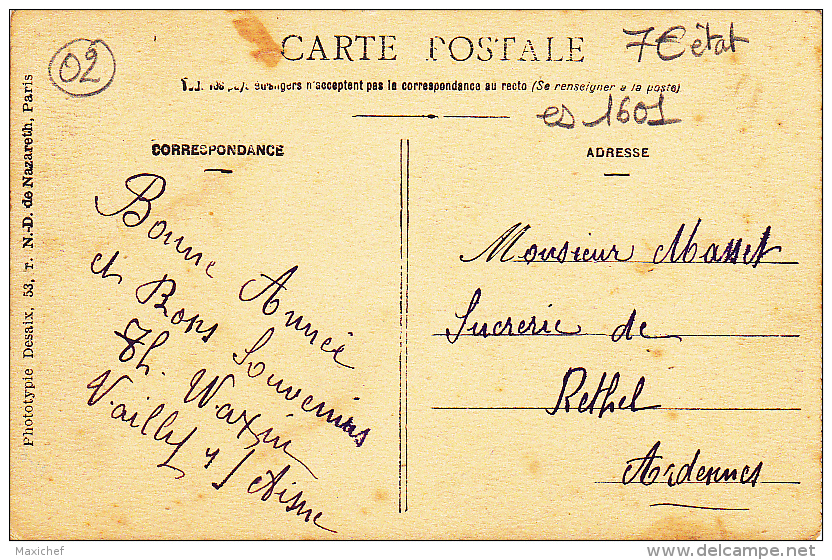 02
CARTE POSTALE
7€ état
étrangers n'acceptent pas la correspondance au recto (Se renseigner à la poste)
es 1601
CORRESPONDANCE
Bonne Année
et Bons Souvenirs
Th. Waxin
Vailly s/ Aisne
ADRESSE
Monsieur Masset
Sucrerie de
Rethel
Ardennes
Phototypie Desaix, 53, r. N.-D. de Nazareth, Paris
Maxichef
delcampe.net